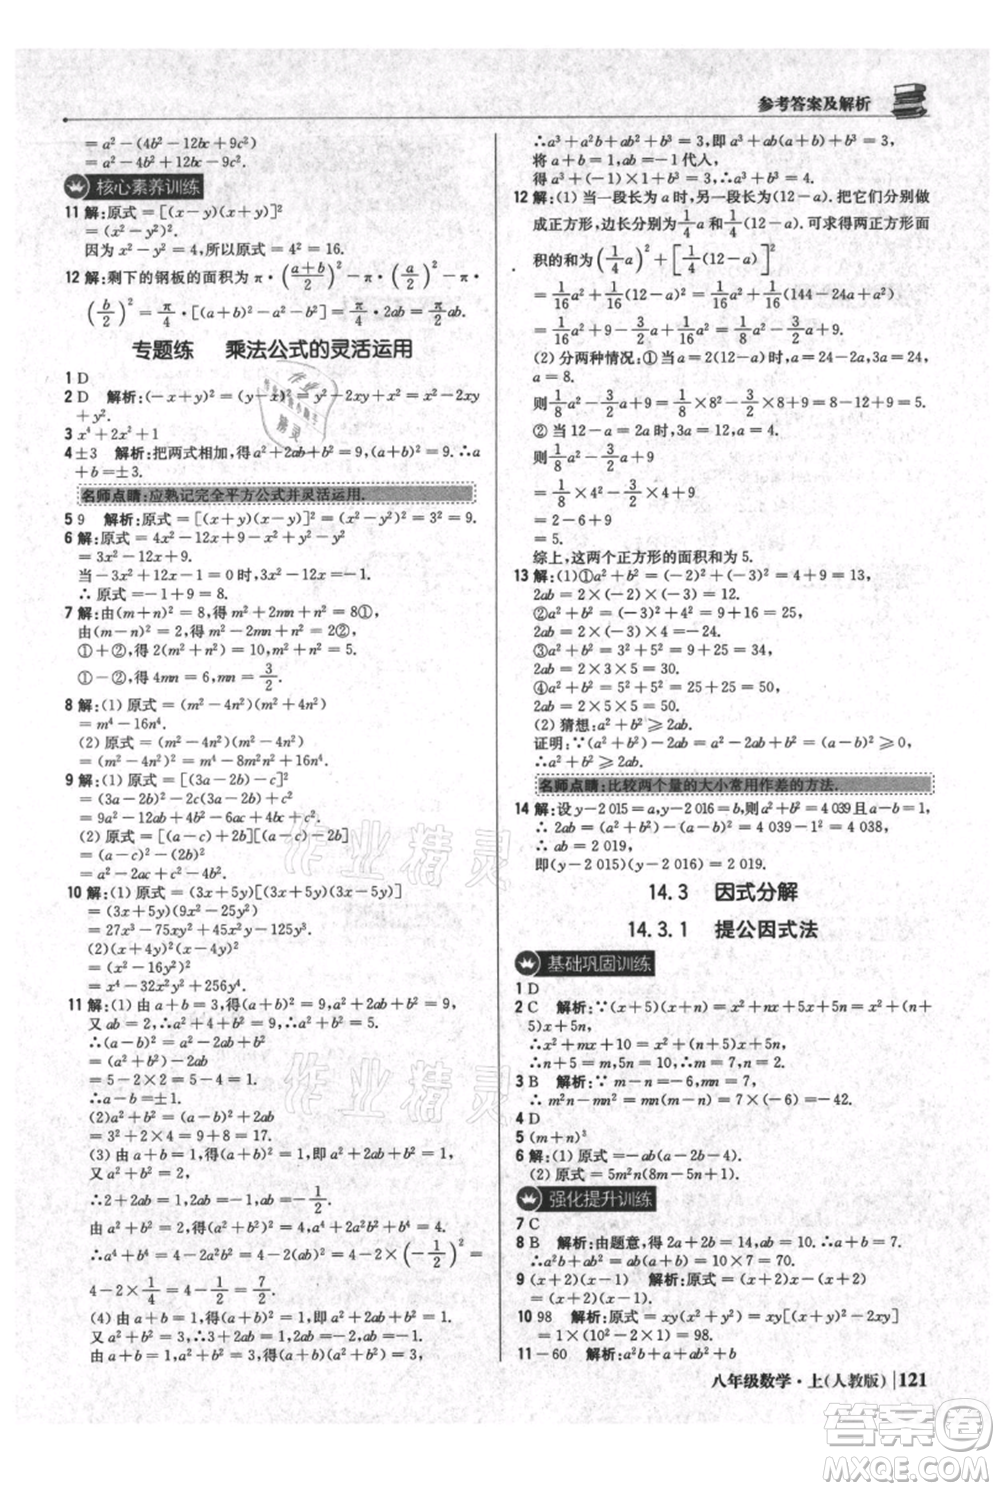 参考答案及解析
=a²-(4b²-12bc+9c²)
=a²-4b²+12bc-9c².
核心素养训练
11 解:原式=[(x-y)(x+y)]²
=(x²-y²)².
因为 x²-y²=4,所以原式=4²=16.
12 解:剩下的钢板的面积为 π·((a+b)/2)²-π·(a/2)²-π·
(b/2)²=π/4·[(a+b)²-a²-b²]=π/4·2ab=π/2 ab.
专题练 乘法公式的灵活运用
1 D
2 D 解析:(-x+y)²=(y-x)²=y²-2xy+x²=x²-2xy
+y².
3 x⁴+2x²+1
4 ±3 解析:把两式相加,得 a²+2ab+b²=(a+b)²=9.∴a
+b=±3.
名师点睛:应熟记完全平方公式并灵活运用.
5 9 解析:原式=[(x+y)(x-y)]²=(x²-y²)²=3²=9.
6 解:原式=4x²-12x+9-x²+y²-y²
=3x²-12x+9.
当-3x²+12x-1=0时,3x²-12x=-1,
∴原式=-1+9=8.
7 解:由(m+n)²=8,得 m²+2mn+n²=8①,
由(m-n)²=2,得 m²-2mn+n²=2②,
①+②,得 2(m²+n²)=10,m²+n²=5.
①-②,得 4mn=6,mn=3/2.
8 解:(1) 原式=(m²-4n²)(m²+4n²)
=m⁴-16n⁴.
(2) 原式=(m²-4n²)(m²-4n²)
=(m²-4n²)²=m⁴-8m²n²+16n⁴.
9 解:(1) 原式=[(3a-2b)-c]²
=(3a-2b)²-2(3a-2b)c+c²
=9a²-12ab+4b²-6ac+4bc+c².
(2) 原式=[(a-c)+2b][(a-c)-2b]
=(a-c)²-(2b)²
=a²-2ac+c²-4b².
10 解:(1) 原式=(3x+5y)[(3x+5y)(3x-5y)]
=(3x+5y)(9x²-25y²)
=27x³-75xy²+45x²y-125y³.
(2)(x+4y)²(x-4y)²
=(x²-16y²)²
=x⁴-32x²y²+256y⁴.
11 解:(1) 由 a+b=3,得(a+b)²=9,即 a²+2ab+b²=9,
又 ab=2,∴a²+4+b²=9,∴a²+b²=5.
∴(a-b)²=a²-2ab+b²=5-2×2=1.
∴a-b=±1.
(2)a²+b²=(a-b)²+2ab
=(-3)²+2×4=17.
(3) 由 a+b=1,得(a+b)²=1,即 a²+2ab+b²=1,
又 a²+b²=2,
∴2+2ab=1,2ab=-1,ab=-1/2.
由 a²+b²=2,得(a²+b²)²=4,即 a⁴+2a²b²+b⁴=4,
∴a⁴+b⁴=4-2a²b²=4-2(ab)²=4-2×(-1/2)²=
4-2×1/4=4-1/2=7/2.
(4) 由 a+b=1,得(a+b)²=1,即 a²+2ab+b²=1,
又 a²+b²=3,∴3+2ab=1,ab=-1.
由(a²+b²)(a+b)=3×1=3,
∴a³+a²b+ab²+b³=3,即 a³+ab(a+b)+b³=3.
将 a+b=1,ab=-1代入,
得 a³+(-1)×1+b³=3,∴a³+b³=4.
12 解:(1) 当一段长为 a 时,另一段长为(12-a).把它们分别做
成正方形,边长分别为1/4 a 和1/4(12-a),则两个正方形面
积的和为(1/4 a)²+[1/4(12-a)]²
=1/16 a²+1/16(12-a)²=1/16 a²+1/16(144-24a+a²)
=1/16 a²+1/16 a²-3/2 a+9=1/8 a²-3/2 a+9.
(2) 分两种情况:①当 a=2(12-a)时,a=24-2a,3a=24,
a=8.
则1/8 a²-3/2 a+9=1/8×8²-3/2×8+9=8-12+9=5.
②当 12-a=2a时,3a=12,a=4.
则1/8 a²-3/2 a+9=1/8×4²-3/2×4+9
=2-6+9
=5.
综上,这两个正方形的面积和为 5.
13 解:(1)①a²+b²=(-2)²+3²=4+9=13,
2ab=2×(-2)×3=-12.
②a²+b²=(1/2)²+(1/3)²=1/4+1/9=13/36,
2ab=2×1/2×1/3=1/3.
③a²+b²=3²+5²=9+25=34,
2ab=2×3×5=30.
④a²+b²=5²+5²=25+25=50,
2ab=2×5×5=50.
(2) 猜想:a²+b²⩾2ab.
证明:∵a²+b²-2ab=(a-b)²⩾0,
∴a²+b²⩾2ab.
名师点睛:比较两个量的大小常用作差的方法.
14 解:设 y-2 015=a,y-2 016=b,则 a²+b²=4 039且 a-b=1.
∴2ab=a²+b²-(a-b)²=4 039-1²=4 038,
∴ab=2 019,
即(y-2 015)(y-2 016)=2 019.
14.3 因式分解
14.3.1 提公因式法
基础巩固训练
1 D
2 C 解析:∵(x+5)(x+n)=x²+nx+5x+5n=x²+(n+
5)x+5n,
∴x²+mx+10=x²+(n+5)x+5n,
∴n+5=m,5n=10,∴n=2,m=7.
3 B 解析:∵m-n=7,mn=-6,
∴m²n-mn²=mn(m-n)=-6×7=-42.
4 D
5 (m+n)³
6 解:(1) 原式=-ab(a-2b-4).
(2) 原式=5x(x-2y)².
强化提升训练
7 C
8 B 解析:由题意,得 2a+2b=14,ab=10,∴a+b=7.
∴a²b+ab²=ab(a+b)=70.
9 (x+2)(x-1) 解析:原式=x(x+2)-(x+2)
=(x+2)(x-1).
10 98 解析:原式=xy(x²+y²)=xy[(x+y)²-2xy]
=1×(10²-2×1)=98.
11 -60 解析:a²b²+ab²+b
八年级数学·上(人教版) 121
作业精灵
作业精灵
答案圈
MXQE.COM